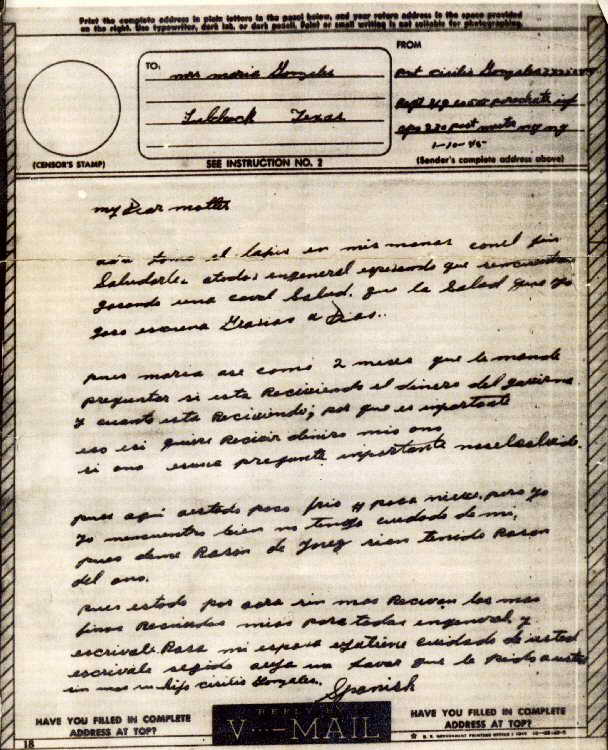 Print the complete address in plain letters in the panel below, and your return address in the space provided
on the right. Use typewriter, dark ink, or dark pencil. Faint or small writing is not suitable for photographing.
FROM
TO:
mrs maria Gonzales
Lubbock Texas
pvt cirilio Gonzales
apo 230 post master ny ny
1-10-45
(CENSOR'S STAMP)
SEE INSTRUCTION NO. 2
(Sender's complete address above)
my Dear mother
tomo el lapis en mis manos con el fin
Saludarle a todos in general esperando que
gosando una caval Salud. que la Salud que yo
goso es Grasias a Dios..
pues maria ase como 2 meses que le mande
preguntar si esta Reciviendo el dinero del govierno
y cuanto esta Reciviendo; por que es importante
eso si quiere Recivir dinero mio ono
si ono es una pregunta importante
pues aqui a estado poco frio y poca nieve, pero yo
Yo mencuentro bien no tenga cuidado de mi,
pues deme Rason de Jorg si an tenido Rason
del ono.
pues es todo por aora sin mas Recivan los mas
finos Recuerdos mios para todos in general y
escrivale Rosa mi esposa tiene cuidado de usted
escrivale seguido aga un favor que le pido a usted
sin mas su hijo cirilio Gonzales.
Spanish
HAVE YOU FILLED IN COMPLETE
ADDRESS AT TOP?
REPLY BY
V···—MAIL
HAVE YOU FILLED IN COMPLETE
ADDRESS AT TOP?
18
U. S. GOVERNMENT PRINTING OFFICE